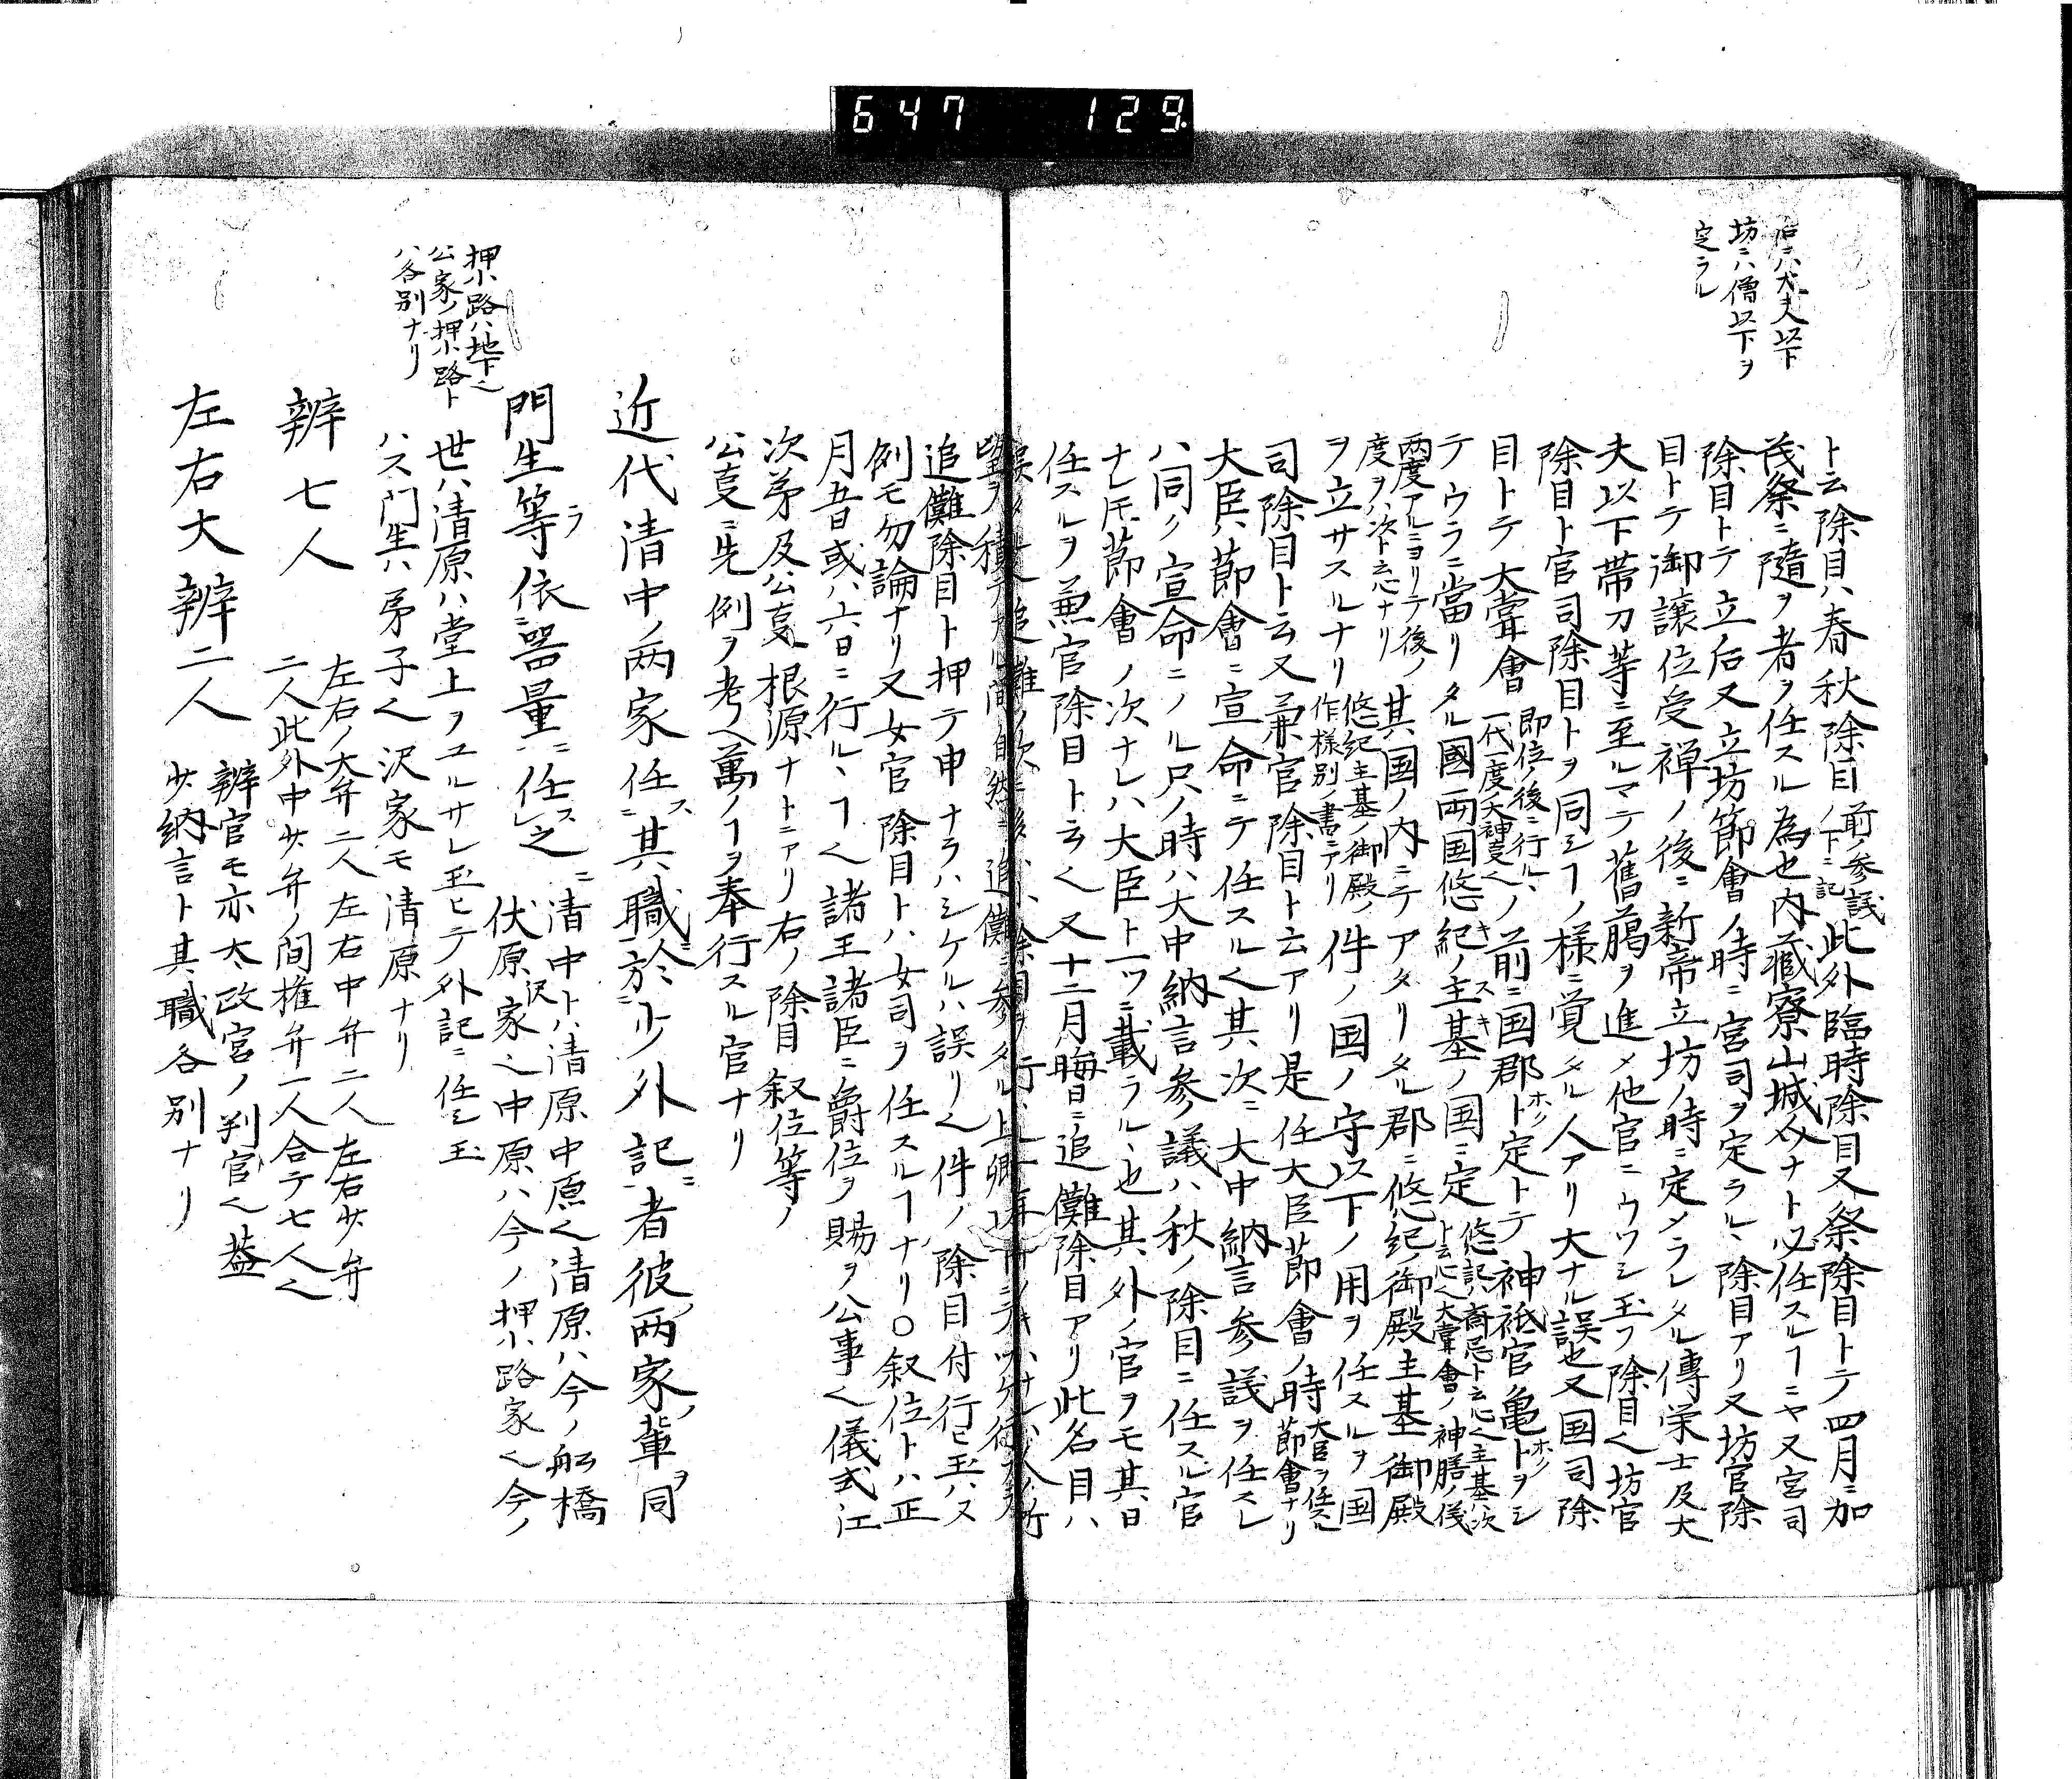 647 129
后ニハ大夫以下
坊ニハ僧以下ヲ
定ラル
ト云除目ハ春秋除目前ノ参議ノ下ニ記此外臨時除目又祭除目トテ四月ニ加
茂祭ニ隨ヲ者ヲ任スル為也内藏寮山城ナト必任スルヿニヤ又宮司
除目トテ立后又立坊節會ノ時ニ宮司ヲ定ラル、除目アリ又坊官除
目トテ御譲位受禅ノ後ニ新帝立坊ノ時ニ定メラレタル傳栄士及大
夫以下帯刀等ニ至ルマテ舊﨟ヲ進メ他官ニウツシ玉フ除目也坊官
除目ト官司除目トヲ同シヿノ様ニ覚タル人アリ大ナル誤也又国司除
目トテ大嘗會即位ノ後ニ行ル、一代一度ノ大神事也ノ前ニ国郡ト定トテ神祇官亀トヲシ
テウラニ當リタル國両国悠紀ノ主基ノ国ニ定悠記ハ斎忌ト云心也主基ハ次ト云心也大嘗會ノ神膳ノ儀
両度アルニヨリテ後ノ度ヲハ次ト云ナリ其国ノ内ニテアタリタル郡ニ悠紀御殿主基御殿
ヲ立サスルナリ悠紀主基ノ御殿ノ作様別ノ書ニアリ件ノ国ノ守以下ノ用ヲ任スルヲ国
司除目ト云又兼官除目ト云アリ是任大臣節會ノ時大臣ヲ任スル節會ナリ
大臣ハ節會ニ宣命ニテ任スル也其次ニ大中納言参議ヲ任スレ
ハ同ク宣命ニノル尺ノ時ハ大中納言参議ハ秋ノ除目ニ任スル官
ナレ𪜈節會ノ次ナレハ大臣ト一ツニ載ラル、也其外ノ官ヲモ其日
任スルヲ兼官除目ト云也又十二月晦日ニ追儺除目アリ此名目ハ
追儺除目ト押テ申ナラハシケルハ誤リ也件ノ除目付行ヒ玉ハス
例モ勿論ナリ又女官除目ハ女司ヲ任スルヿナリ〇叙位トハ正
月五日或ハ六日ニ行ル、ヿ也諸王諸臣ニ爵位ヲ賜ヲ公事也儀式江
次第及公㕝根源ナトニアリ右ノ除目叙位等ノ
公㕝ニ先例ヲ考ヘ萬ノヿヲ奉行スル官ナリ
近代清中ノ両家任ス其職ニ於少外記ニ者彼両家ノ輩ヲ同
門生等ラ依器量ニ任ス之ニ清中トハ清原中原也清原ハ今ノ舩橋
伏原沢家也中原ハ今ノ押小路家也今ノ
押小路ハ地下也
公家ノ押小路ト
ハ各別ナリ
世ハ清原ハ堂上ヲユルサレ玉ヒテ外記ニ任シ玉
ハス門生ハ弟子也沢家モ清原ナリ
辨七人
左右ノ大弁二人左右中弁二人左右少弁
二人此外中少弁ノ間権弁一人合テ七人也
左右大辨二人
辨官モ亦太政官ノ判官也蓋
少納言ト其職各別ナリ